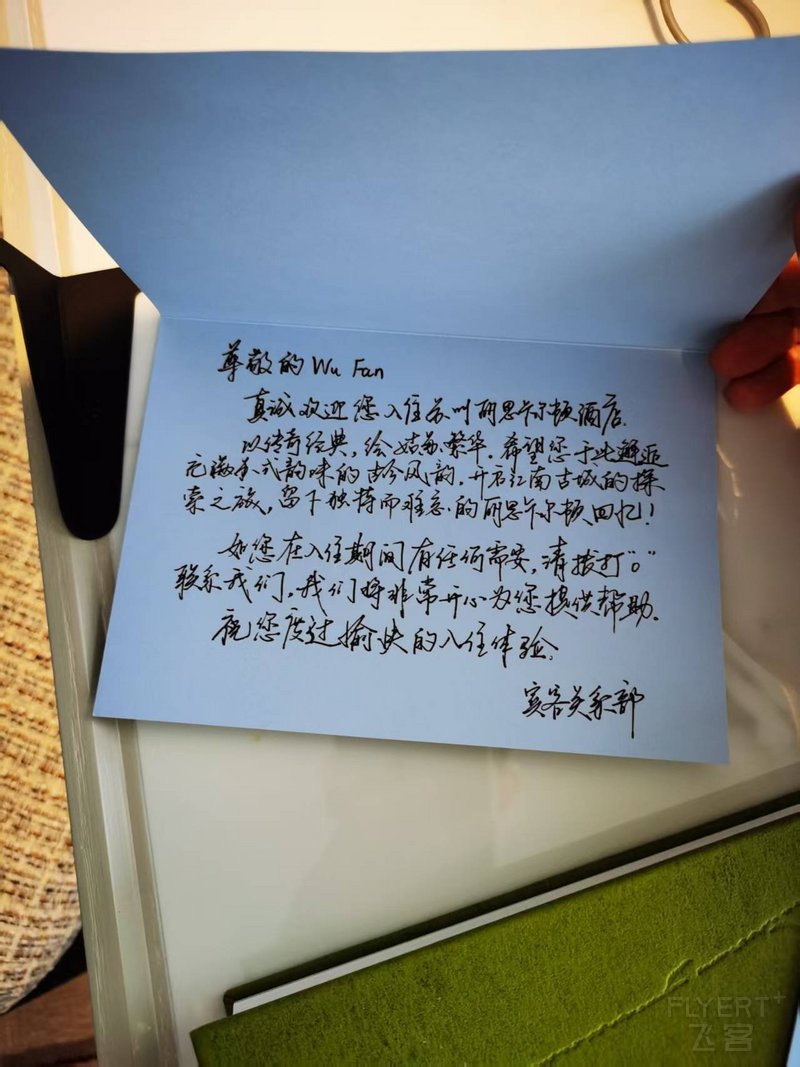 尊敬的 Wu Fan
真诚欢迎您入住苏州丽思卡尔顿酒店.
以传奇经典, 绘姑苏繁华. 希望您于此邂逅
式韵味的古今风韵, 开启江南古城的探
索之旅, 留下独特而难忘的丽思卡尔顿回忆!
如您在入住期间有任何需要, 请拨打"0"
联系我们, 我们将非常开心为您提供帮助.
祝您度过愉快的入住体验.
宾客关系部
FLYERT+
飞客